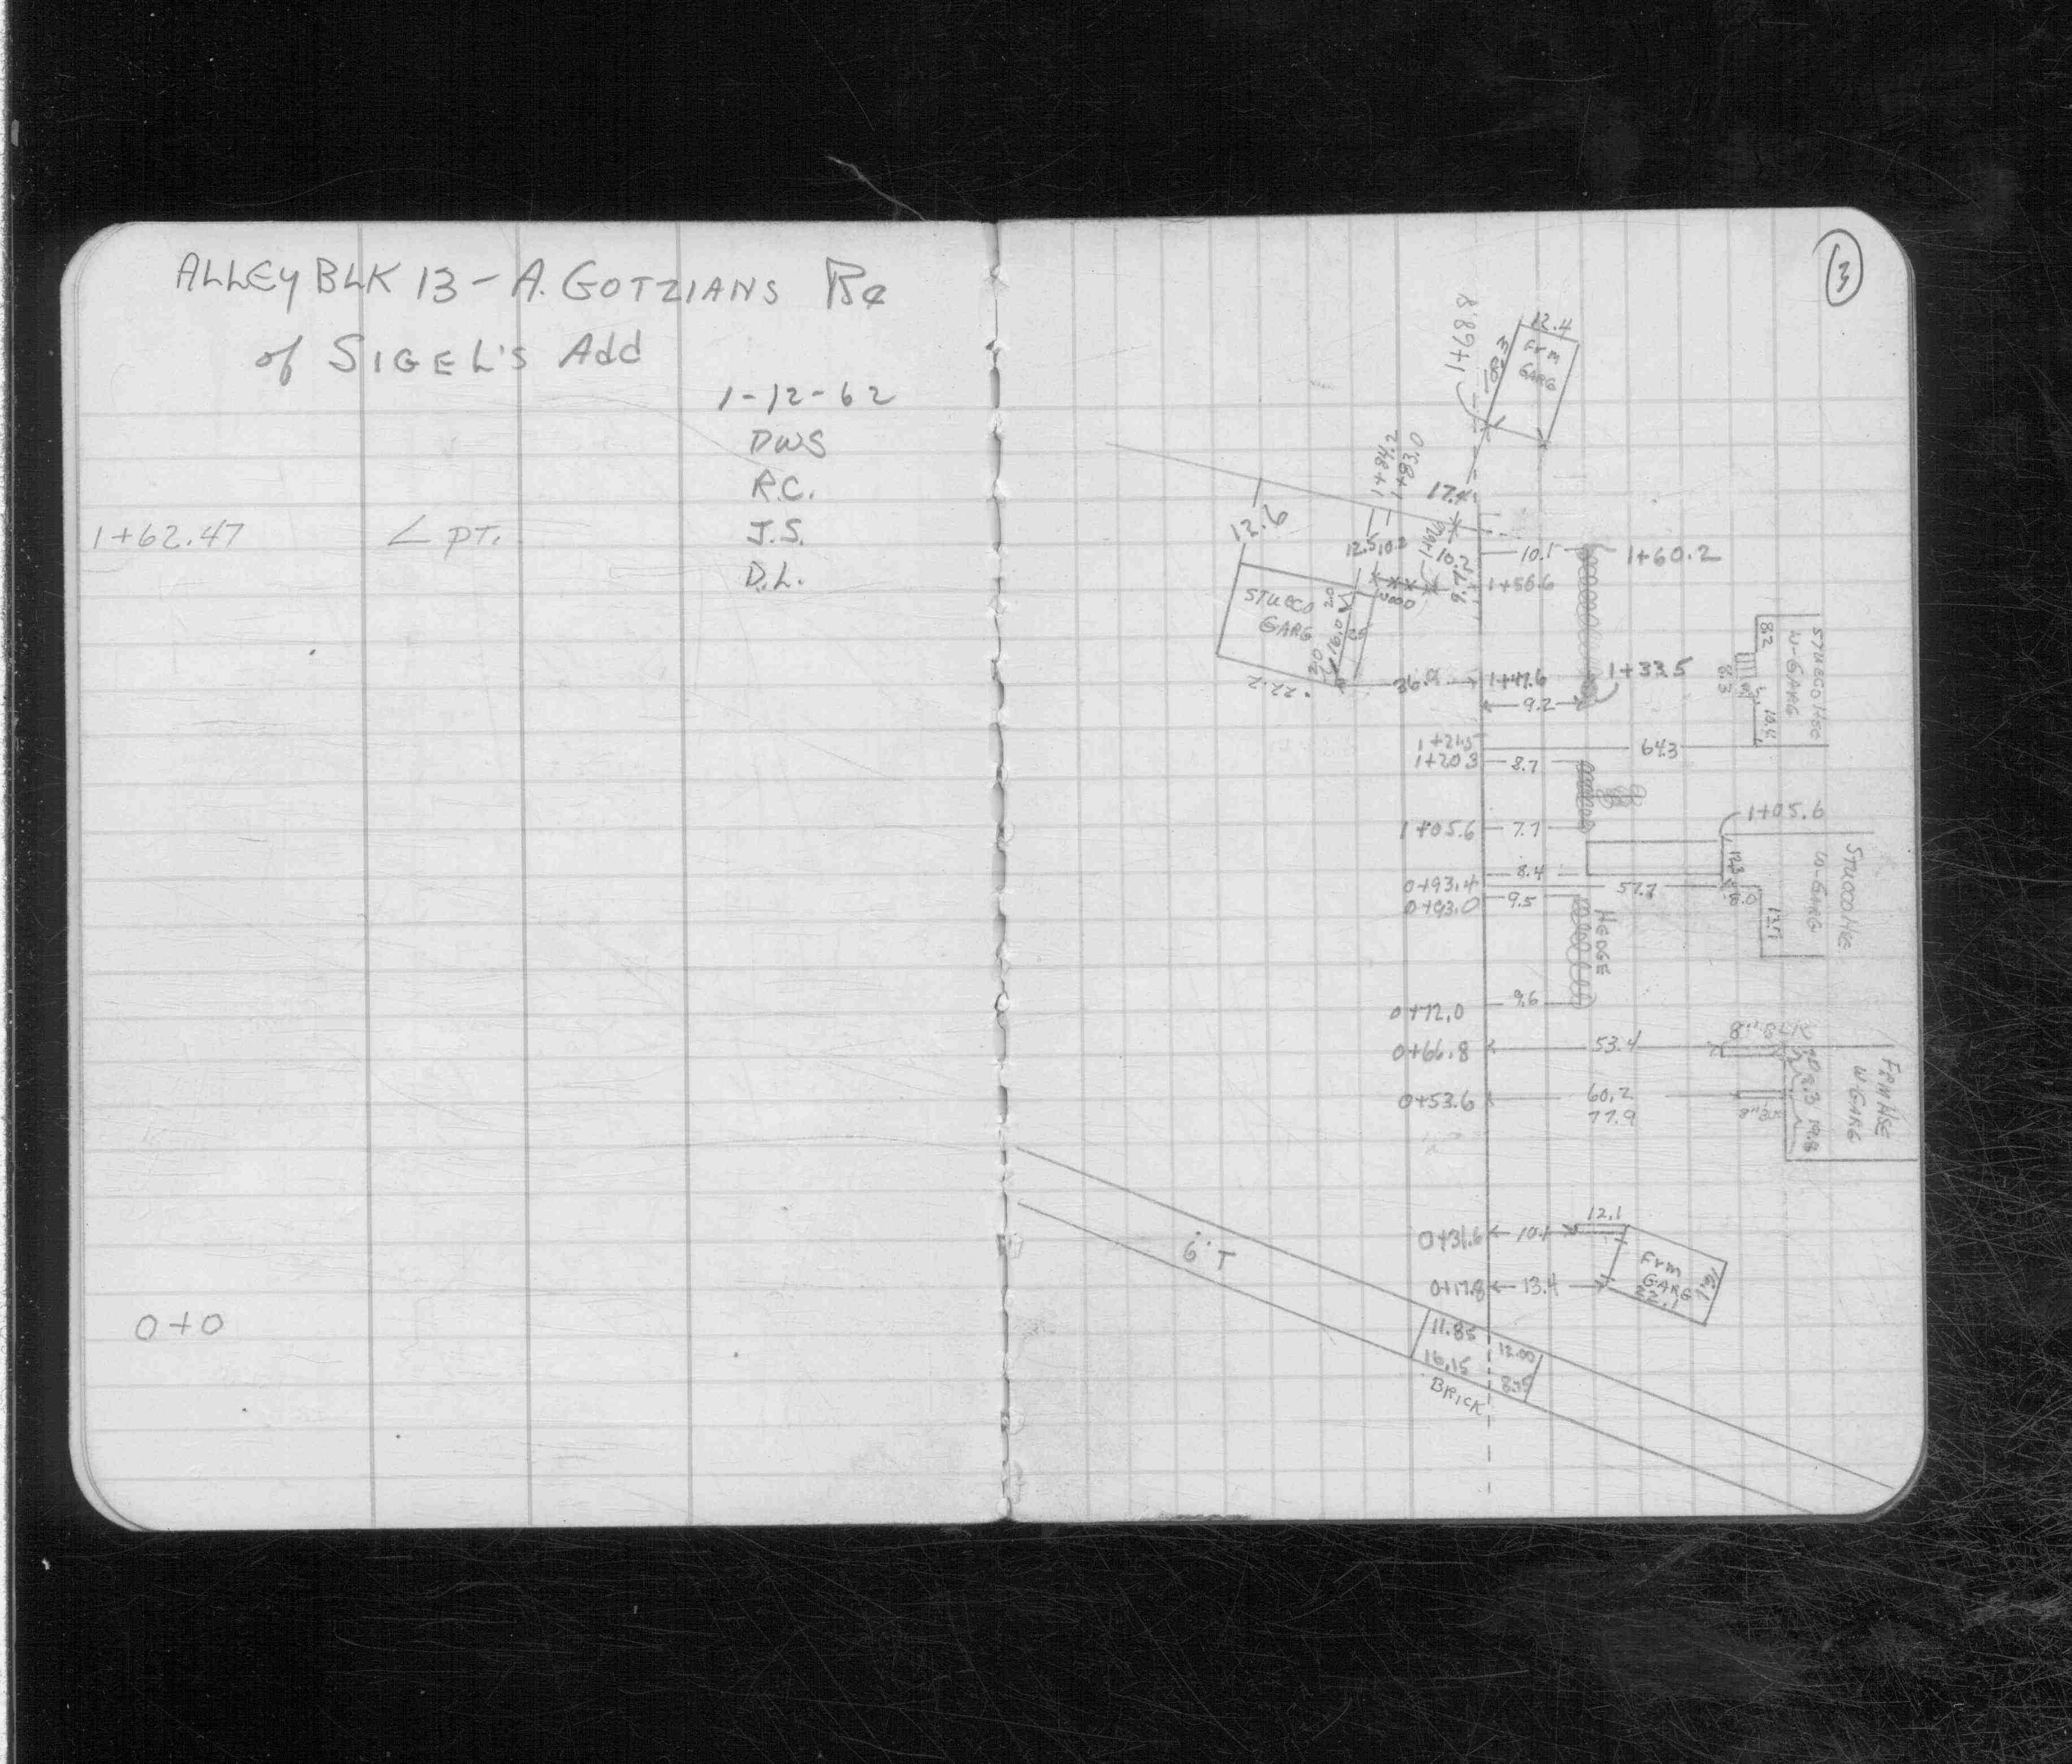 ALLEY BLK 13 - A. GOTZIANS Re
of SIGEL'S Add
1-12-62
DWS
R.C.
J.S.
D.L.
1+62.47 ∠ PT.
0+0
3
12.4
1+68.8
18.3
Frm
GARG
1+84.2
1+83.0
17.4
12.6
12.5
10.2
10.2
10.1
1+60.2
9.7
1+56.6
STUECO
GARG
2.0
16.0
2.0
22.2
36.9
1+47.6
1+33.5
9.2
STUECO HSE
W-GARG
8.2
8.3
10.4
1+21.5
64.3
1+20.3
8.7
1+05.6
1+05.6
7.7
STUCCO HSE
W-GARG
12.3
8.4
0+93.4
57.7
0+93.0
9.5
13.7
HEDGE
9.6
0+72.0
8" BLK
0+66.8
53.4
FRM HSE
W GARG
0+53.6
60.2
77.9
19.8
12.1
0+31.6
10.1
6" T
Frm
GARG
22.1
16.2
0+17.8
13.4
11.85
12.00
16.15
8.75
BRICK